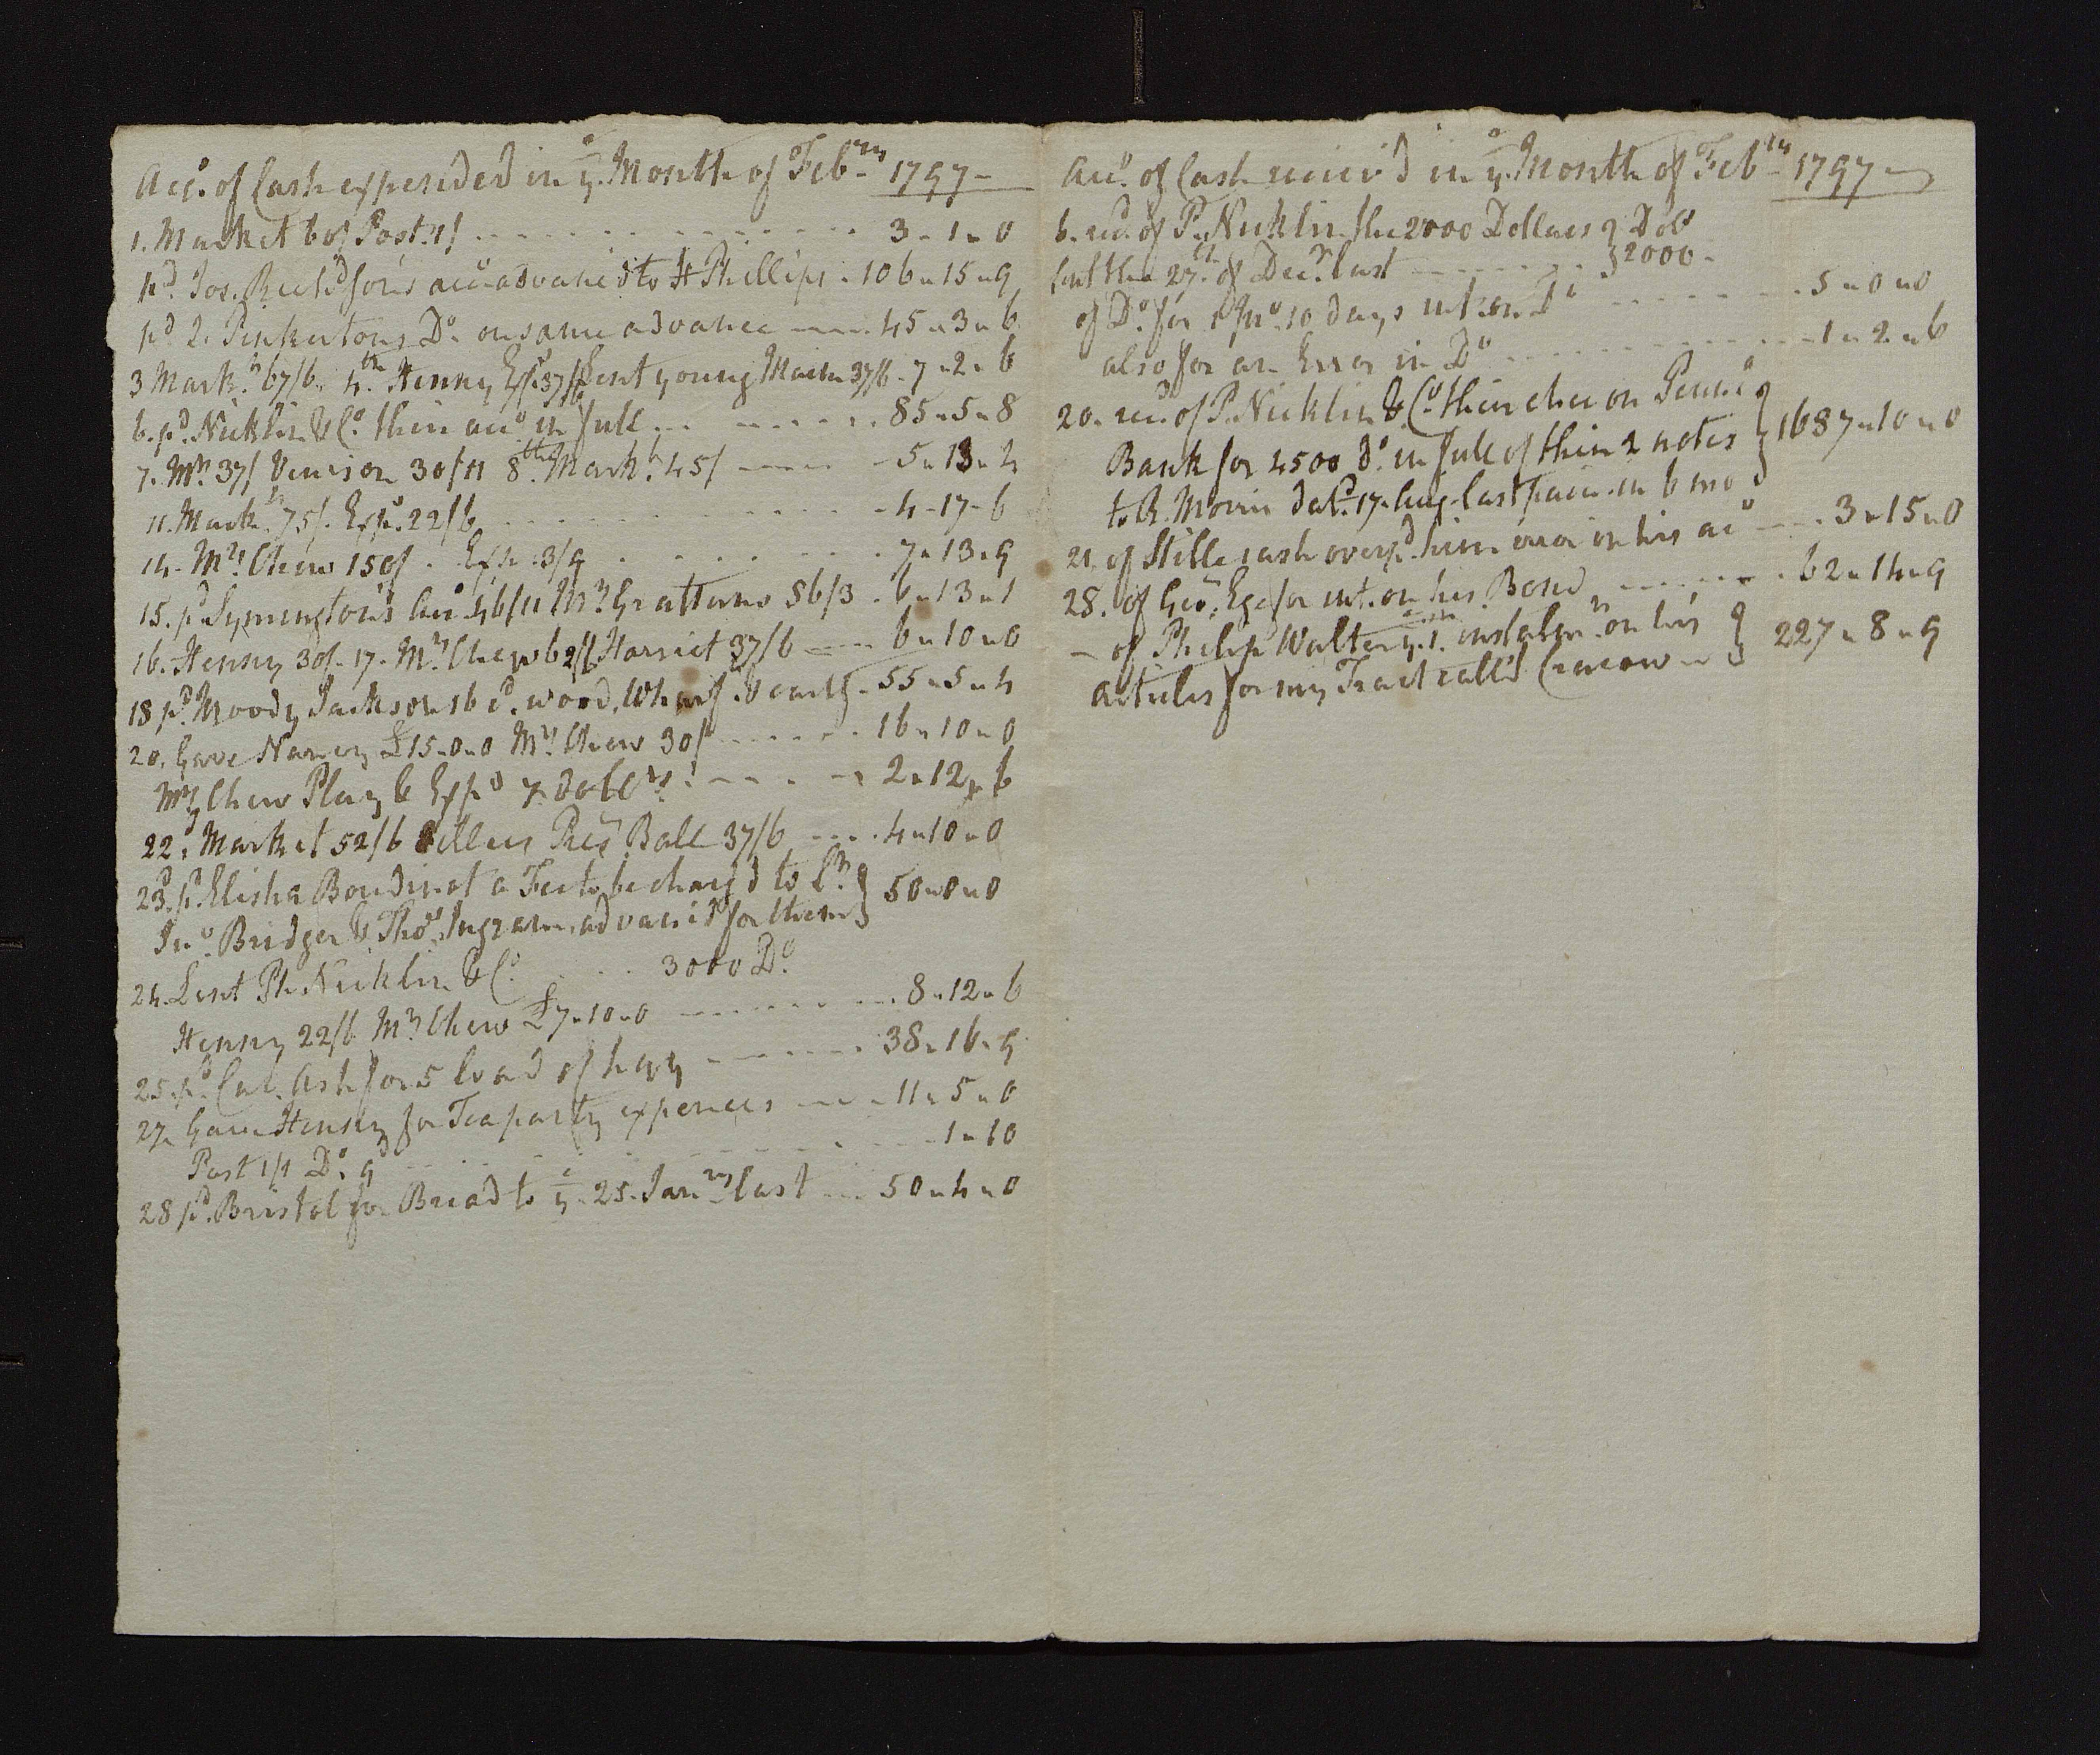 Acco. of Cash expended in ye. Month of Febry 1797
1. Market 60/ Post. 1/ 3 - 1 - 0
pd. Jos. for's acco advanc'd to H Phillips - 106 - 15 - 9
pd. D. Pinkertons Do. on same advance 45 - 3 - 6
3 Markt. 67/6. 4th. Henny Exps. 37/6 Sent young Maim 37/6 - 7 - 2 - 6
6. pd. Nicklin & Co. their acco in full 85 - 5 - 8
7. Mrs. 37/ Venison 30/11 8th. Markt. 45/ 5 - 13 - 4
11. Markt. 75/. Exps. 22/6 4 - 17 - 6
14. Mrs. Chew 150/. Exps. 3/9 7 - 13 - 9
15. pd Symington's acco 46/11 Mrs. Grattons 86/3 - 6 - 13 - 1
16. Henny 30/- 17. Mrs. Chew 62/6 Harriet 37/6 6 - 10 - 0
18 pd. Moody Jackson 16 cd. wood, Wharf. & cartg - 55 - 5 - 4
20. Gave Nancy £15 - 0 - 0 Mrs. Chew 30/ 16 - 10 - 0
Mrs Chew Play & Exps 7 dolls 2 - 12 - 6
22d. Market 52/6 Presd. Ball 37/6 4 - 10 - 0
23d. pd. Elisha Boudinot a Fee to be charg'd to
Jno. Bridger & Thos. Ingram, advanc'd for them 50 - 0 - 0
24. Lent Ph. Nicklin & Co. 3000 Do.
Henny 22/6 Mrs Chew £7 - 10 - 0 8 - 12 - 6
25. pd. Cal. Ash for 5 load of hay 38 - 16 - 9
27. Gave Henny for Tea party expences 11 - 5 - 0
Post 1/1 Do. 9d 1 - 10
28 pd. Bristol for Bread to ye. 25. Janry last 50 - 4 - 0
Acco. of Cash receiv'd in ye. Month of Febry 1797
6. recd. of P. Nicklin the 2000 Dollars Dolls
lent the 27th. of Decr. last 2000 -
of Do. for 1 Mo. 10 days int. on Do 5 - 0 - 0
also for an Error in Do 1 - 2 - 6
20. recd. of P. Nicklin & Co. their chec on Penna
Bank for 4500 Do. in full of their 2 notes 1687 - 10 - 0
to R. Morris dat'd. 17. Aug. last paia. in 6 mo
21. of Stille cash overpd. him error in his aco 3 - 15 - 0
28. of Geo. Ege for int. on his Bond 62 - 14 - 9
- of Philip Walter ye. 1. instalmt. on his 227 - 8 - 9
Articles for my Tract call'd Cracow